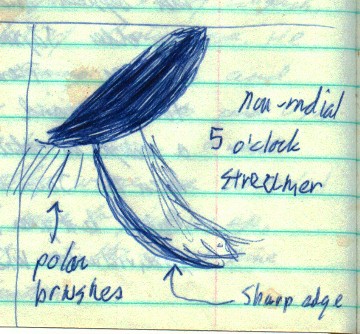 non-radial
5 o'clock
streamer
polar
brushes
Sharp edge